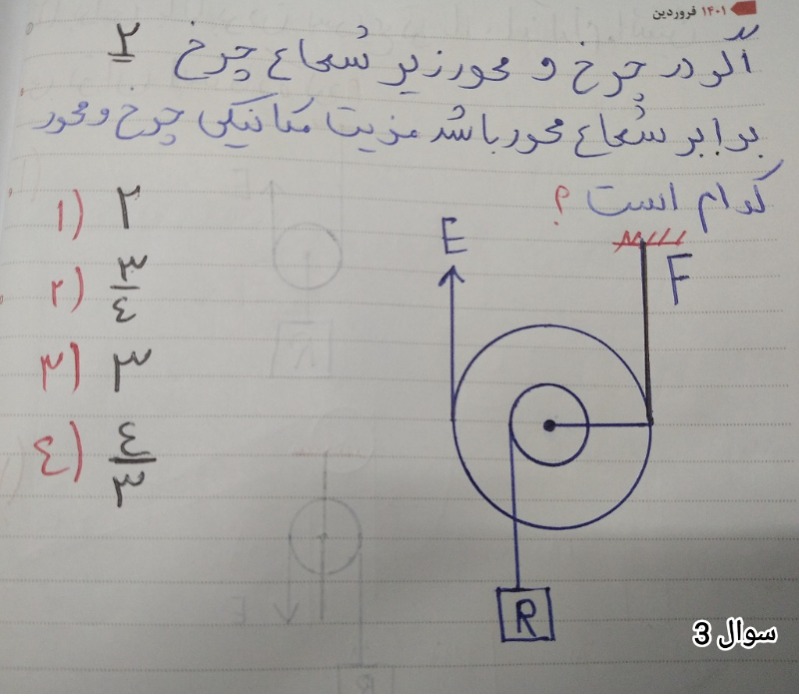 ۱۴۰۱ فروردین
اگر در چرخ و محور زیر شعاع چرخ ۲
برابر شعاع محور باشد مزیت مکانیکی چرخ و محور
کدام است ؟
۱) ۲
۲) ۳/۴
۳) ۳
۴) ۴/۳
E
F
R
سوال 3